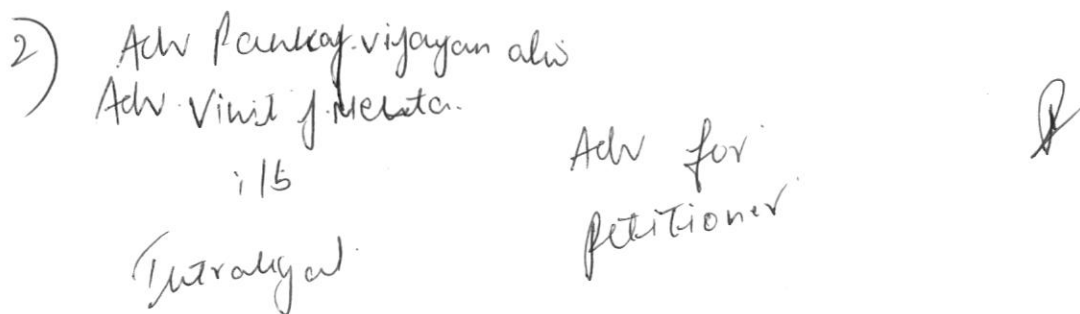 2) Adv Pankaj.vijayan a/w
Adv. Vinit J. Mehta.
i/b
Intralegal
Adv for
Petitioner